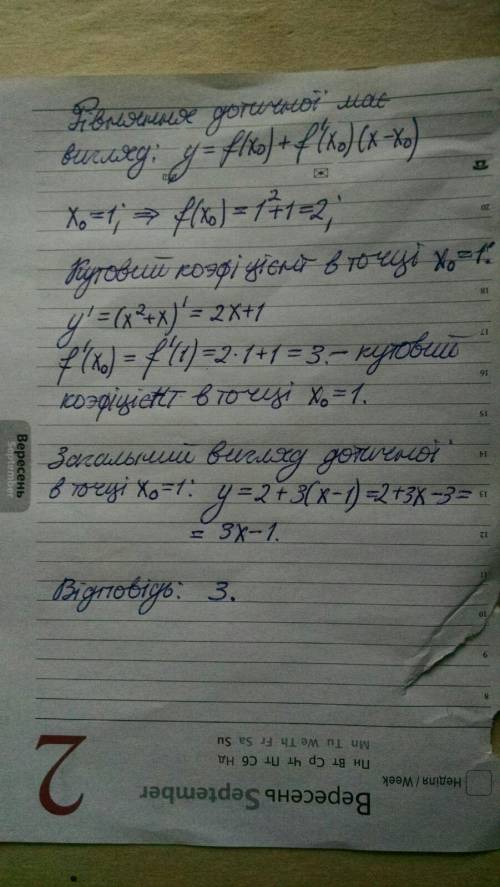 Рівняння дотичної має
вигляд: y = f(x₀) + f'(x₀)(x-x₀)
x₀=1; ⇒ f(x₀) = 1²+1=2;
Кутовий коефіцієнт в точці x₀=1:
y' = (x²+x)' = 2x+1
f'(x₀) = f'(1) = 2·1+1 = 3. – кутовий
коефіцієнт в точці x₀=1.
Загальний вигляд дотичної
в точці x₀=1: y = 2+3(x-1) = 2+3x-3=
= 3x-1.
Відповідь: 3.
20
18
17
16
15
14
13
12
11
10
9
8
Вересень
September
2
Mn Tu We Th Fr Sa Su
Пн Вт Ср Чт Пт Сб Нд
Вересень September
Неділя / Week